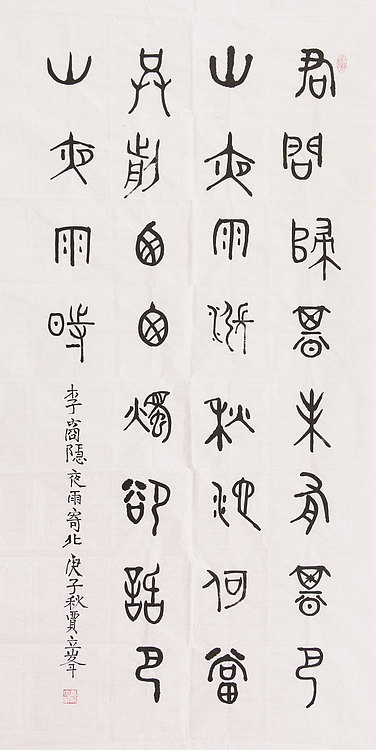 君問歸期未有期巴
山夜雨漲秋池何當
共剪西窗燭卻話巴
山夜雨時
李商隱夜雨寄北 庚子秋賈立峯